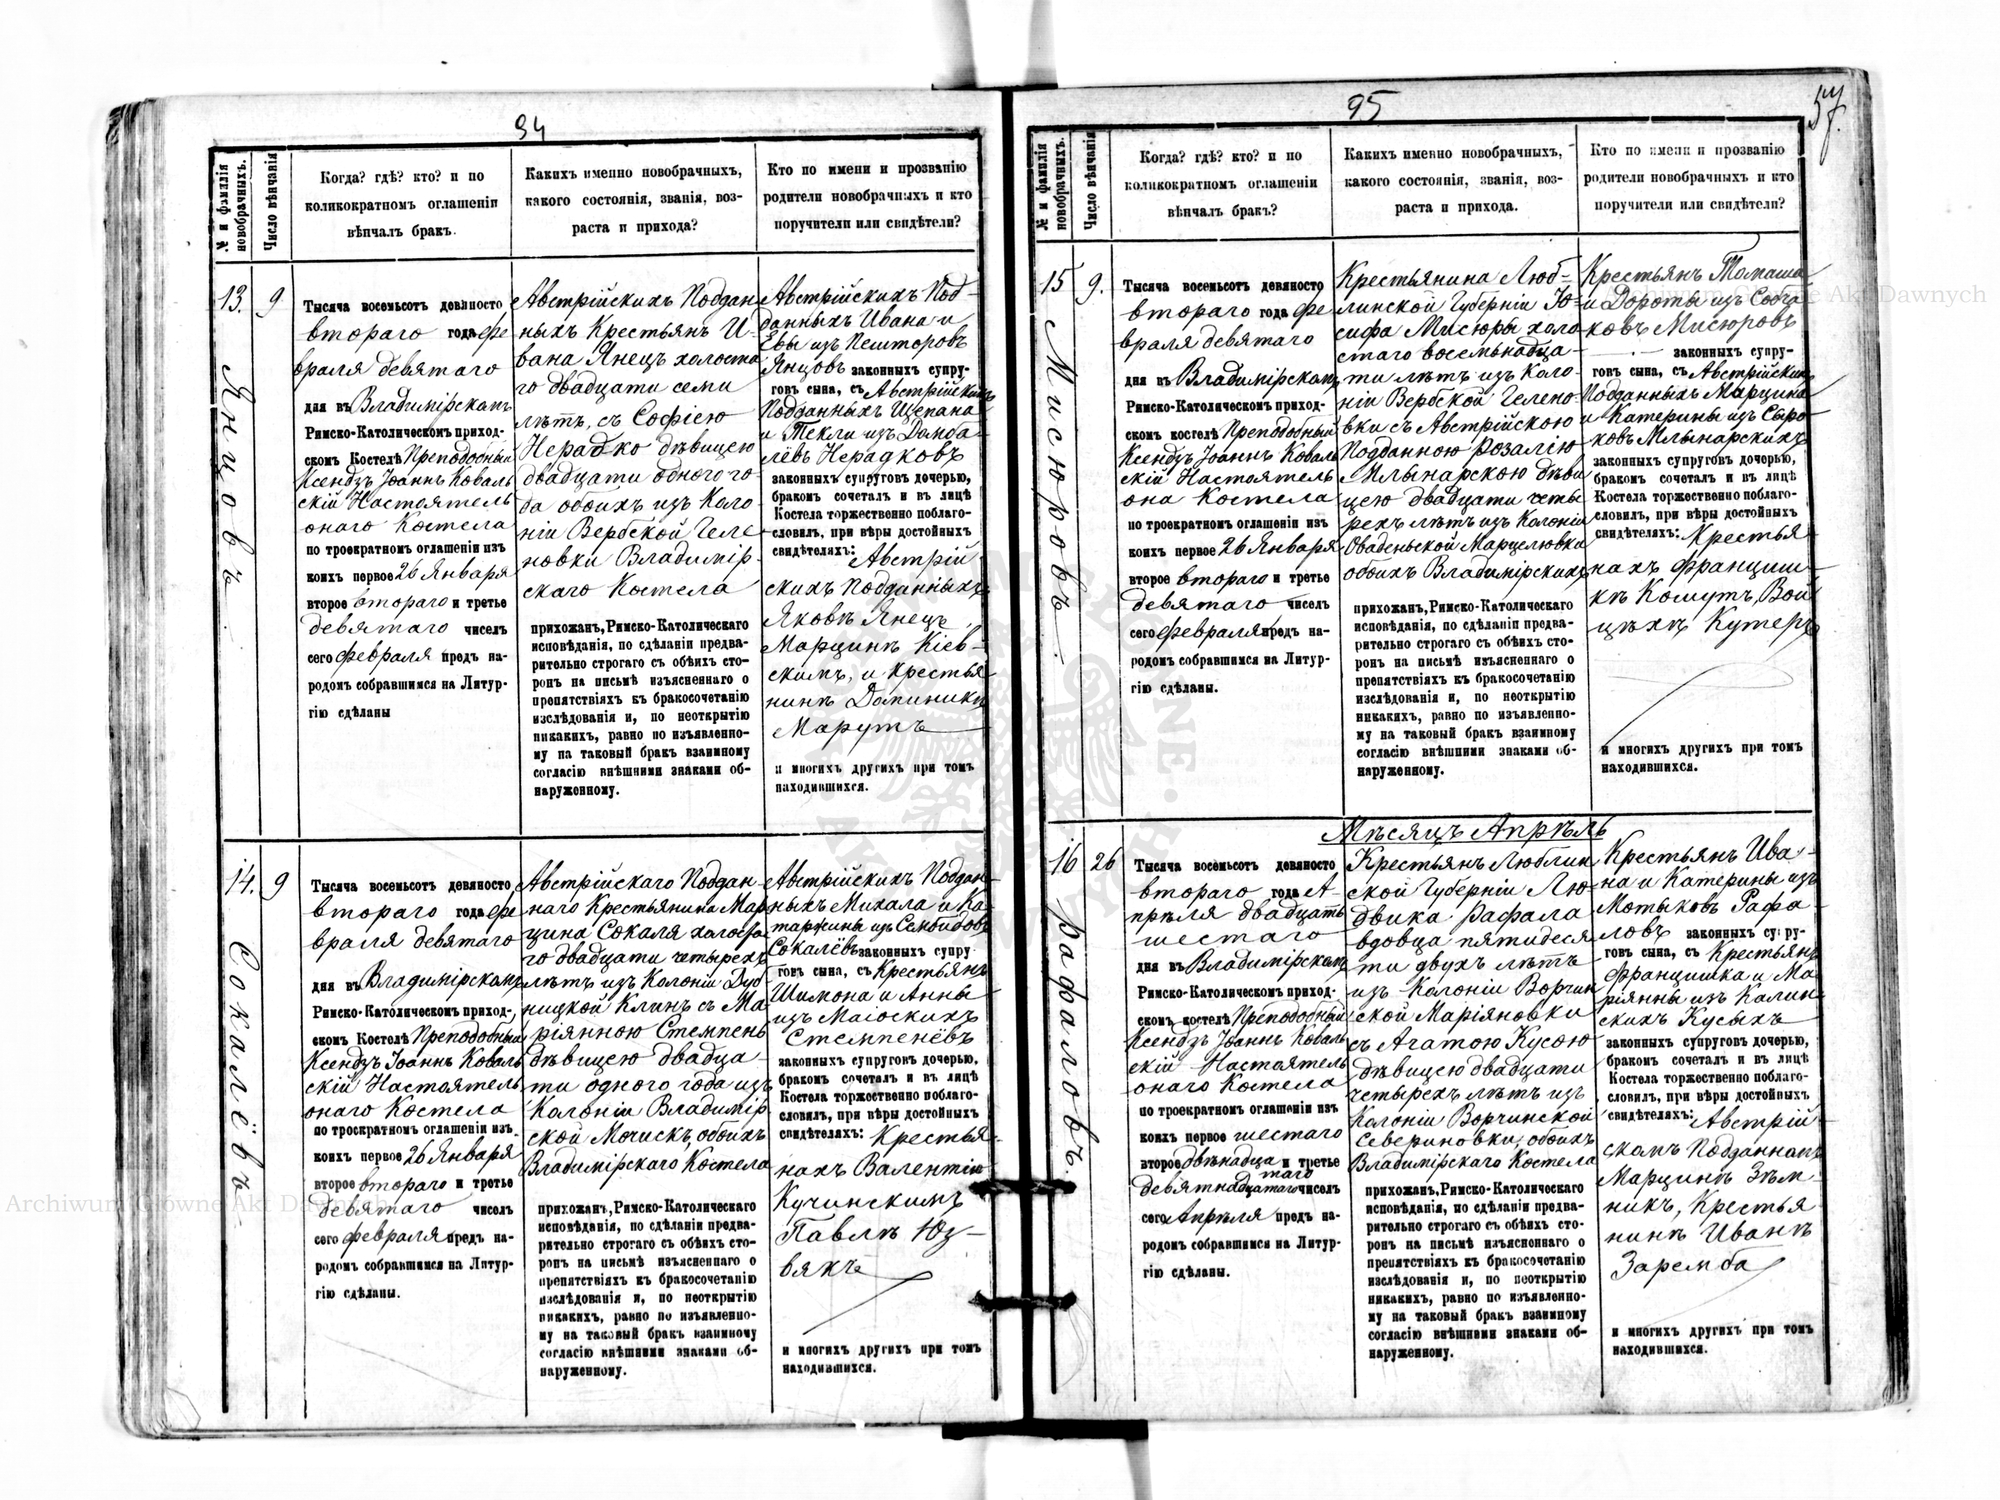 94
№ и фамилія новобрачныхъ.
Число вѣнчанія
Когда? гдѣ? кто? и по
коликократномъ оглашеніи
вѣнчалъ бракъ.
Какихъ именно новобрачныхъ,
какого состоянія, званія, воз-
раста и прихода?
Кто по имени и прозванію
родители новобрачныхъ и кто
поручители или свидѣтели?
13.
Янцовъ
9
Тысяча восемьсотъ девяносто
втораго года фе
враля девятаго
дня въ Владимірскомъ
Римско-Католическомъ приход-
скомъ Костелѣ Преподобный
Ксендзъ Іоаннъ Коваль
скій Настоятель
онаго Костела
по троекратномъ оглашеніи изъ
коихъ первое 26 Января
второе втораго и третье
девятаго чиселъ
сего февраля предъ на-
родомъ собравшимся на Литур-
гію сдѣланы
Австрійскихъ Поддан
ныхъ Крестьянъ И-
вана Янецъ холоста
го двадцати семи
лѣтъ, съ Софіею
Нерадко дѣвицею
двадцати одного го
да обоихъ изъ Коло
ніи Вербской Геле
новки Владимір-
скаго Костела
прихожан, Римско-Католическаго
исповѣданія, по сдѣланіи предва-
рительно строгаго съ обѣихъ сто-
ронъ на письмѣ изъясненнаго о
препятствіяхъ къ бракосочетанію
изслѣдованія и, по неоткрытію
никакихъ, равно по изъявленно-
му на таковый бракъ взаимному
согласію внѣшними знаками об-
наруженному.
Австрійскихъ Под-
данныхъ Ивана и
Евы изъ Пешторовъ
Янцовъ законныхъ супру-
говъ сына, съ Австрійскихъ
Подданныхъ Щепана
и Текли изъ Домба-
лёвъ Нерадковъ
законныхъ супруговъ дочерью,
бракомъ сочеталъ и въ лицѣ
Костела торжественно поблаго-
словилъ, при вѣры достойныхъ
свидѣтеляхъ: Австрій
скихъ Подданныхъ
Яковѣ Янецъ,
Марцинѣ Кіев-
скимъ, и крестья
нинѣ Доминикѣ
Марутъ
и многихъ другихъ при томъ
находившихся.
14.
Сокалёвъ
9
Тысяча восемьсотъ девяносто
втораго года фе
враля девятаго
дня въ Владимірскомъ
Римско-Католическомъ приход-
скомъ Костелѣ Преподобный
Ксендзъ Іоаннъ Коваль
скій Настоятель
онаго Костела
по троекратномъ оглашеніи изъ
коихъ первое 26 Января
второе втораго и третье
девятаго чиселъ
сего февраля предъ на-
родомъ собравшимся на Литур-
гію сдѣланы.
Австрійскаго Поддан-
наго Крестьянина Мар
цина Сокаля холоста
го двадцати четырехъ
лѣтъ изъ Колоніи Дуб
ницкой Клинъ съ Ма
ріянною Стемпень
дѣвицею двадца-
ти одного года изъ
Колоніи Владимір
ской Мочискъ, обоихъ
Владимірскаго Костела
прихожан, Римско-Католическаго
исповѣданія, по сдѣланіи предва-
рительно строгаго съ обѣихъ сто-
ронъ на письмѣ изъясненнаго о
препятствіяхъ къ бракосочетанію
изслѣдованія и, по неоткрытію
никакихъ, равно по изъявленно-
му на таковый бракъ взаимному
согласію внѣшними знаками об-
наруженному.
Австрійскихъ Поддан-
ныхъ Михала и Ка
таржины изъ
Сокалёвъ законныхъ супру
говъ сына, съ Крестьянъ
Шимона и Анны
изъ
Стемпенёвъ
законныхъ супруговъ дочерью,
бракомъ сочеталъ и въ лицѣ
Костела торжественно поблаго-
словилъ, при вѣры достойныхъ
свидѣтеляхъ: Крестья-
нахъ Валентіи
Кучинскимъ
Павлѣ Юз-
вякъ
и многихъ другихъ при томъ
находившихся.
95
57.
№ и фамилія новобрачныхъ.
Число вѣнчанія
Когда? гдѣ? кто? и по
коликократномъ оглашеніи
вѣнчалъ бракъ?
Какихъ именно новобрачныхъ,
какого состоянія, званія, воз-
раста и прихода.
Кто по имени и прозванію
родители новобрачныхъ и кто
поручители или свидѣтели?
15
Мисюровъ.
9.
Тысяча восемьсотъ девяносто
втораго года фе
враля девятаго
дня въ Владимірскомъ
Римско-Католическомъ приход-
скомъ костелѣ Преподобный
Ксендзъ Іоаннъ Коваль
скій Настоятель
она Костела
по троекратномъ оглашеніи изъ
коихъ первое 26 Января
второе втораго и третье
девятаго чиселъ
сего февраля предъ на-
родомъ собравшимся на Литур-
гію сдѣланы.
Крестьянина Люб-
линской Губерніи Іо-
сифа Мисюры холо
стаго восемьнадца-
ти лѣтъ изъ Коло-
ніи Вербской Гелено-
вки съ Австрійскою
Подданною Розалію
Млынарскою дѣви
цею двадцати четы
рехъ лѣтъ изъ Колоніи
Оваденьской Марцелювки
обоихъ Владимірскихъ
прихожан, Римско-Католическаго
исповѣданія, по сдѣланіи предва-
рительно строгаго съ обѣихъ сто-
ронъ на письмѣ изъясненнаго о
препятствіяхъ къ бракосочетанію
изслѣдованія и, по неоткрытію
никакихъ, равно по изъявленно-
му на таковый бракъ взаимному
согласію внѣшними знаками об-
наруженному.
Крестьянъ Томаша
и Дороты изъ
ковъ Мисюровъ
законныхъ супру-
говъ сына, съ Австрійскихъ
Подданныхъ Марцина
и Катерины изъ Сыро-
ковъ Млынарскихъ
законныхъ супруговъ дочерью,
бракомъ сочеталъ и въ лицѣ
Костела торжественно поблаго-
словилъ, при вѣры достойныхъ
свидѣтеляхъ: Крестья
нахъ Франциш-
кѣ Кошутъ, Вой
цѣхѣ Кутеръ
и многихъ другихъ при томъ
находившихся.
16
Рафаловъ.
26
Тысяча восемьсотъ девяносто
втораго года А-
прѣля двадцать
шестаго
дня въ Владимірскомъ
Римско-Католическомъ приход-
скомъ костелѣ Преподобный
Ксендзъ Іоаннъ Коваль
скій Настоятель
онаго Костела
по троекратномъ оглашеніи изъ
коихъ первое шестаго
второе двѣнадца и третье
таго
девятнадцатаго чиселъ
сего Апрѣля предъ на-
родомъ собравшимся на Литур-
гію сдѣланы.
Мѣсяцъ Апрѣль
Крестьянъ Люблин
ской Губерніи Лю-
двика Рафала
вдовца пятидеся
ти двухъ лѣтъ
изъ Колоніи Ворчин
ской Маріяновки
съ Агатою Кусою
дѣвицею двадцати
четырехъ лѣтъ изъ
Колоніи Ворчинской
Севериновки, обоихъ
Владимірскаго Костела
прихожан, Римско-Католическаго
исповѣданія, по сдѣланіи предва-
рительно строгаго съ обѣихъ сто-
ронъ на письмѣ изъясненнаго о
препятствіяхъ къ бракосочетанію
изслѣдованія и, по неоткрытію
никакихъ, равно по изъявленно-
му на таковый бракъ взаимному
согласію внѣшними знаками об-
наруженному.
Крестьянъ Ива-
на и Катерины изъ
Мотыковъ Рафа-
ловъ законныхъ супру-
говъ сына, съ Крестьянъ
Францишка и Ма-
ріянны изъ Калин-
скихъ Кусыхъ
законныхъ супруговъ дочерью,
бракомъ сочеталъ и въ лицѣ
Костела торжественно поблаго-
словилъ, при вѣры достойныхъ
свидѣтеляхъ: Австрій-
скомъ Подданномъ
Марцинѣ Зѣм-
никъ, Крестья-
нинѣ Иванѣ
Заремба
и многихъ другихъ при томъ
находившихся.
Archiwum Główne Akt Dawnych
Archiwum Główne Akt Dawnych